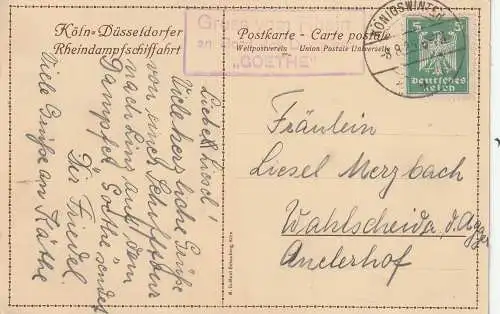 Köln-Düsseldorfer
Rheindampfschiffahrt
Postkarte - Carte postale
Weltpostverein - Union Postale Universelle
Gruss vom Rhein
an
„GOETHE"
KÖNIGSWINTER
5 5
Deutsches
Reich
Liebe Liesel!
Viele herzliche Grüße
von einer Schultour
nach Linz auf dem
Dampfer „Goethe" sendet
Dir Friedel.
Viele Grüße an Käthe
Fräulein
Liesel Merzbach
Wahlscheid a. d. Agger
Auelerhof